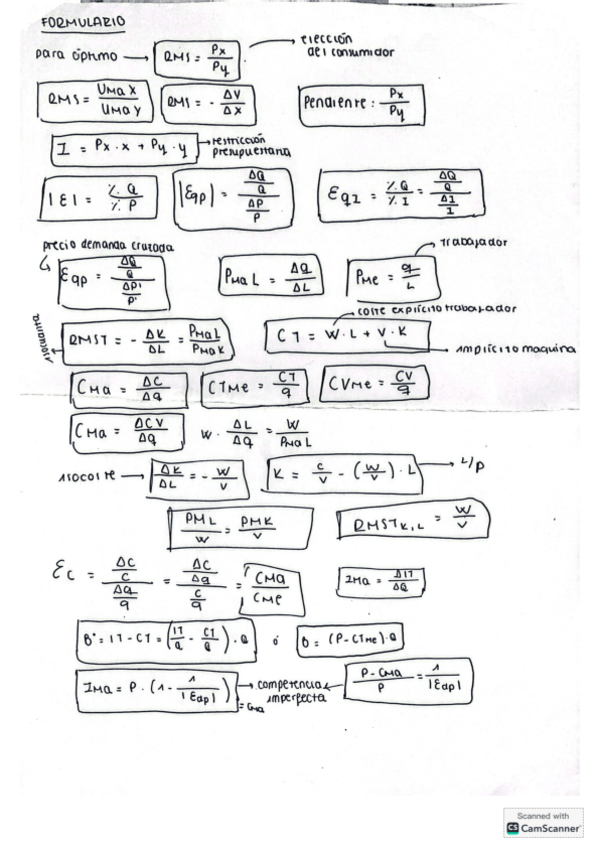 FORMULARIO
para óptimo → RMS = Px/Py → elección del consumidor
RMS = UMa X / UMa Y   RMS = - ΔY/ΔX   Pendiente: Px/Py
I = Px · x + Py · y → restricción presupuestaria
|E| = %Q / %P   |Eqp| = (ΔQ/Q) / (ΔP/P)   EqI = %Q / %I = (ΔQ/Q) / (ΔI/I)
precio demanda cruzada
Eqp = (ΔQ/Q) / (ΔP'/P')   PMa L = Δq/ΔL   PMe = q/L → trabajador
isocuanta
RMST = - ΔK/ΔL = PMaL / PMaK   CT = W · L + V · K
coste explícito trabajador
implícito maquina
CMa = ΔC/Δq   CTMe = CT/q   CVMe = CV/q
CMa = ΔCV/Δq   W · ΔL/Δq = W/PMaL
isocoste → ΔK/ΔL = - W/V   K = C/V - (W/V) · L → L/P
PML/W = PMK/V   RMST K,L = W/V
Ec = (ΔC/C) / (Δq/q) = (ΔC/Δq) / (C/q) = CMa/CMe   IMa = ΔIT/ΔQ
B° = IT - CT = (IT/Q - CT/Q) · Q   ó   B = (P - CTMe) · Q
IMa = P · (1 - 1/|Edp|) = CMa → competencia imperfecta ← P - CMa / P = 1/|Edp|
Scanned with
CS CamScanner